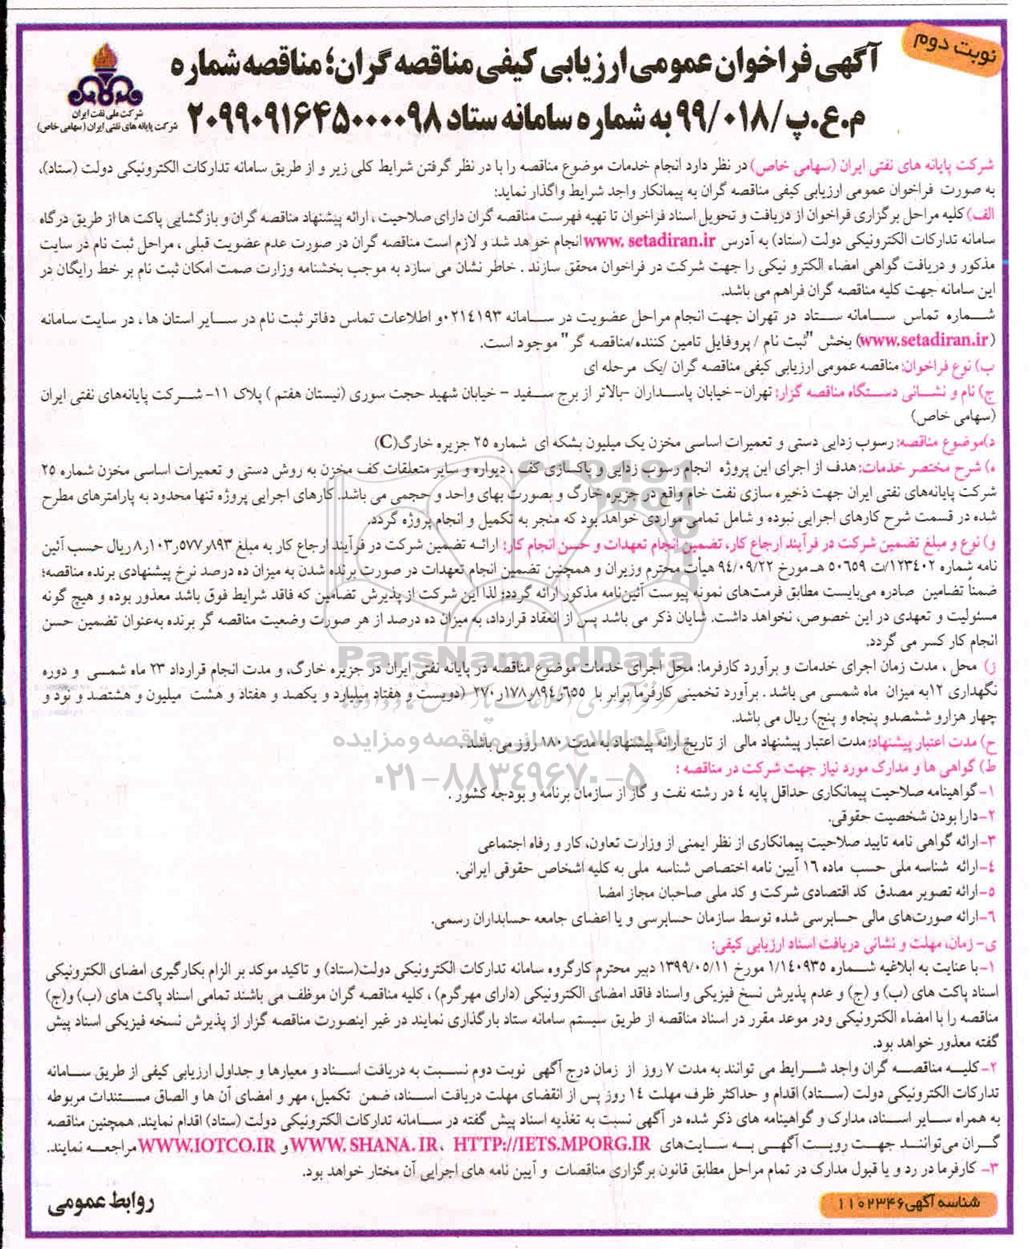 نوبت دوم
آگهی فراخوان عمومی ارزیابی کیفی مناقصه گران؛ مناقصه شماره
م.ع.پ/۹۹/۰۱۸ به شماره سامانه ستاد ۲۰۹۹۰۹۱۶۴۵۰۰۰۰۹۸
شرکت ملی نفت ایران
شرکت پایانه های نفتی ایران (سهامی خاص)
شرکت پایانه های نفتی ایران (سهامی خاص) در نظر دارد انجام خدمات موضوع مناقصه را با در نظر گرفتن شرایط کلی زیر و از طریق سامانه تدارکات الکترونیکی دولت (ستاد)،
به صورت فراخوان عمومی ارزیابی کیفی مناقصه گران به پیمانکار واجد شرایط واگذار نماید:
الف) کلیه مراحل برگزاری فراخوان از دریافت و تحویل اسناد فراخوان تا تهیه فهرست مناقصه گران دارای صلاحیت ، ارائه پیشنهاد مناقصه گران و بازگشایی پاکت ها از طریق درگاه
سامانه تدارکات الکترونیکی دولت (ستاد) به آدرس www. setadiran.ir انجام خواهد شد و لازم است مناقصه گران در صورت عدم عضویت قبلی ، مراحل ثبت نام در سایت
مذکور و دریافت گواهی امضاء الکترو نیکی را جهت شرکت در فراخوان محقق سازند . خاطر نشان می سازد به موجب بخشنامه وزارت صمت امکان ثبت نام بر خط رایگان در
این سامانه جهت کلیه مناقصه گران فراهم می باشد.
شماره تماس سامانه ستاد در تهران جهت انجام مراحل عضویت در سامانه ۰۲۱۴۱۹۳ و اطلاعات تماس دفاتر ثبت نام در سایر استان ها ، در سایت سامانه
(www.setadiran.ir) بخش "ثبت نام / پروفایل تامین کننده/مناقصه گر" موجود است.
ب) نوع فراخوان: مناقصه عمومی ارزیابی کیفی مناقصه گران /یک مرحله ای
ج) نام و نشانی دستگاه مناقصه گزار: تهران- خیابان پاسداران -بالاتر از برج سفید - خیابان شهید حجت سوری (نیستان هفتم ) پلاک ۱۱- شرکت پایانه‌های نفتی ایران
(سهامی خاص)
د)موضوع مناقصه: رسوب زدایی دستی و تعمیرات اساسی مخزن یک میلیون بشکه ای شماره ۲۵ جزیره خارگ(C)
ه) شرح مختصر خدمات: هدف از اجرای این پروژه انجام رسوب زدایی و پاکسازی کف ، دیواره و سایر متعلقات کف مخزن به روش دستی و تعمیرات اساسی مخزن شماره ۲۵
شرکت پایانه‌های نفتی ایران جهت ذخیره سازی نفت خام واقع در جزیره خارگ و بصورت بهای واحد و حجمی می باشد. کارهای اجرایی پروژه تنها محدود به پارامترهای مطرح
شده در قسمت شرح کارهای اجرایی نبوده و شامل تمامی مواردی خواهد بود که منجر به تکمیل و انجام پروژه گردد.
و) نوع و مبلغ تضمین شرکت در فرآیند ارجاع کار، تضمین انجام تعهدات و حسن انجام کار: ارائه تضمین شرکت در فرآیند ارجاع کار به مبلغ ۸٫۱۰۳٫۵۷۷٫۸۹۳ ریال حسب آئین
نامه شماره ۱۲۳۴۰۲/ت ۵۰۶۵۹ هـ مورخ ۹۴/۰۹/۲۲ هیأت محترم وزیران و همچنین تضمین انجام تعهدات در صورت برنده شدن به میزان ده درصد نرخ پیشنهادی برنده مناقصه؛
ضمناً تضامین صادره می‌بایست مطابق فرمت‌های نمونه پیوست آئین‌نامه مذکور ارائه گردد؛ لذا این شرکت از پذیرش تضامین که فاقد شرایط فوق باشد معذور بوده و هیچ گونه
مسئولیت و تعهدی در این خصوص، نخواهد داشت. شایان ذکر می باشد پس از انعقاد قرارداد، به میزان ده درصد از هر صورت وضعیت مناقصه گر برنده به‌عنوان تضمین حسن
انجام کار کسر می گردد.
ز) محل ، مدت زمان اجرای خدمات و برآورد کارفرما: محل اجرای خدمات موضوع مناقصه در پایانه نفتی ایران در جزیره خارگ، و مدت انجام قرارداد ۲۳ ماه شمسی و دوره
نگهداری ۱۲به میزان ماه شمسی می باشد . برآورد تخمینی کارفرما برابر با ۲۷۰٫۱۷۸٫۸۹۴٫۶۵۵ (دویست و هفتاد میلیارد و یکصد و هفتاد و هشت میلیون و هشتصد و نود و
چهار هزارو ششصدو پنجاه و پنج) ریال می باشد.
ح) مدت اعتبار پیشنهاد: مدت اعتبار پیشنهاد مالی از تاریخ ارائه پیشنهاد به مدت ۱۸۰ روز می باشد .
ط) گواهی ها و مدارک مورد نیاز جهت شرکت در مناقصه :
۱-گواهینامه صلاحیت پیمانکاری حداقل پایه ۴ در رشته نفت و گاز از سازمان برنامه و بودجه کشور .
۲-دارا بودن شخصیت حقوقی.
۳-ارائه گواهی نامه تایید صلاحیت پیمانکاری از نظر ایمنی از وزارت تعاون، کار و رفاه اجتماعی
۴-ارائه شناسه ملی حسب ماده ۱۶ آیین نامه اختصاص شناسه ملی به کلیه اشخاص حقوقی ایرانی.
۵-ارائه تصویر مصدق کد اقتصادی شرکت و کد ملی صاحبان مجاز امضا
۶-ارائه صورت‌های مالی حسابرسی شده توسط سازمان حسابرسی و یا اعضای جامعه حسابداران رسمی.
ی- زمان، مهلت و نشانی دریافت اسناد ارزیابی کیفی:
۱-با عنایت به ابلاغیه شماره ۱/۱۴۰۹۳۵ مورخ ۱۳۹۹/۰۵/۱۱ دبیر محترم کارگروه سامانه تدارکات الکترونیکی دولت(ستاد) و تاکید موکد بر الزام بکارگیری امضای الکترونیکی
اسناد پاکت های (ب) و (ج) و عدم پذیرش نسخ فیزیکی واسناد فاقد امضای الکترونیکی (دارای مهرگرم) ، کلیه مناقصه گران موظف می باشند تمامی اسناد پاکت های (ب) و(ج)
مناقصه را با امضاء الکترونیکی ودر موعد مقرر در اسناد مناقصه از طریق سیستم سامانه ستاد بارگذاری نمایند در غیر اینصورت مناقصه گزار از پذیرش نسخه فیزیکی اسناد پیش
گفته معذور خواهد بود.
۲-کلیه مناقصه گران واجد شرایط می توانند به مدت ۷ روز از زمان درج آگهی نوبت دوم نسبت به دریافت اسناد و معیارها و جداول ارزیابی کیفی از طریق سامانه
تدارکات الکترونیکی دولت (ستاد) اقدام و حداکثر ظرف مهلت ۱۴ روز پس از انقضای مهلت دریافت اسناد، ضمن تکمیل، مهر و امضای آن ها و الصاق مستندات مربوطه
به همراه سایر اسناد، مدارک و گواهینامه های ذکر شده در آگهی نسبت به تغذیه اسناد پیش گفته در سامانه تدارکات الکترونیکی دولت (ستاد) اقدام نمایند. همچنین مناقصه
گران می‌توانند جهت رویت آگهی به سایت‌های WWW. SHANA. IR، HTTP://IETS.MPORG.IR و WWW.IOTCO.IR مراجعه نمایند.
۳- کارفرما در رد و یا قبول مدارک در تمام مراحل مطابق قانون برگزاری مناقصات و آیین نامه های اجرایی آن مختار خواهد بود.
شناسه آگهی ۱۱۰۲۳۴۶
روابط عمومی
ParsNamadData
پایگاه اطلاع رسانی مناقصه و مزایده
۰۲۱-۸۸۳۴۹۶۷۰-۵